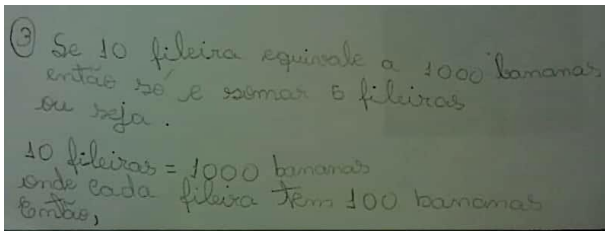 ③ Se 10 fileira equivale a 1000 bananas
então só e somar 5 fileiras
ou seja.
10 fileiras = 1000 bananas
onde cada fileira tem 100 bananas
Então,